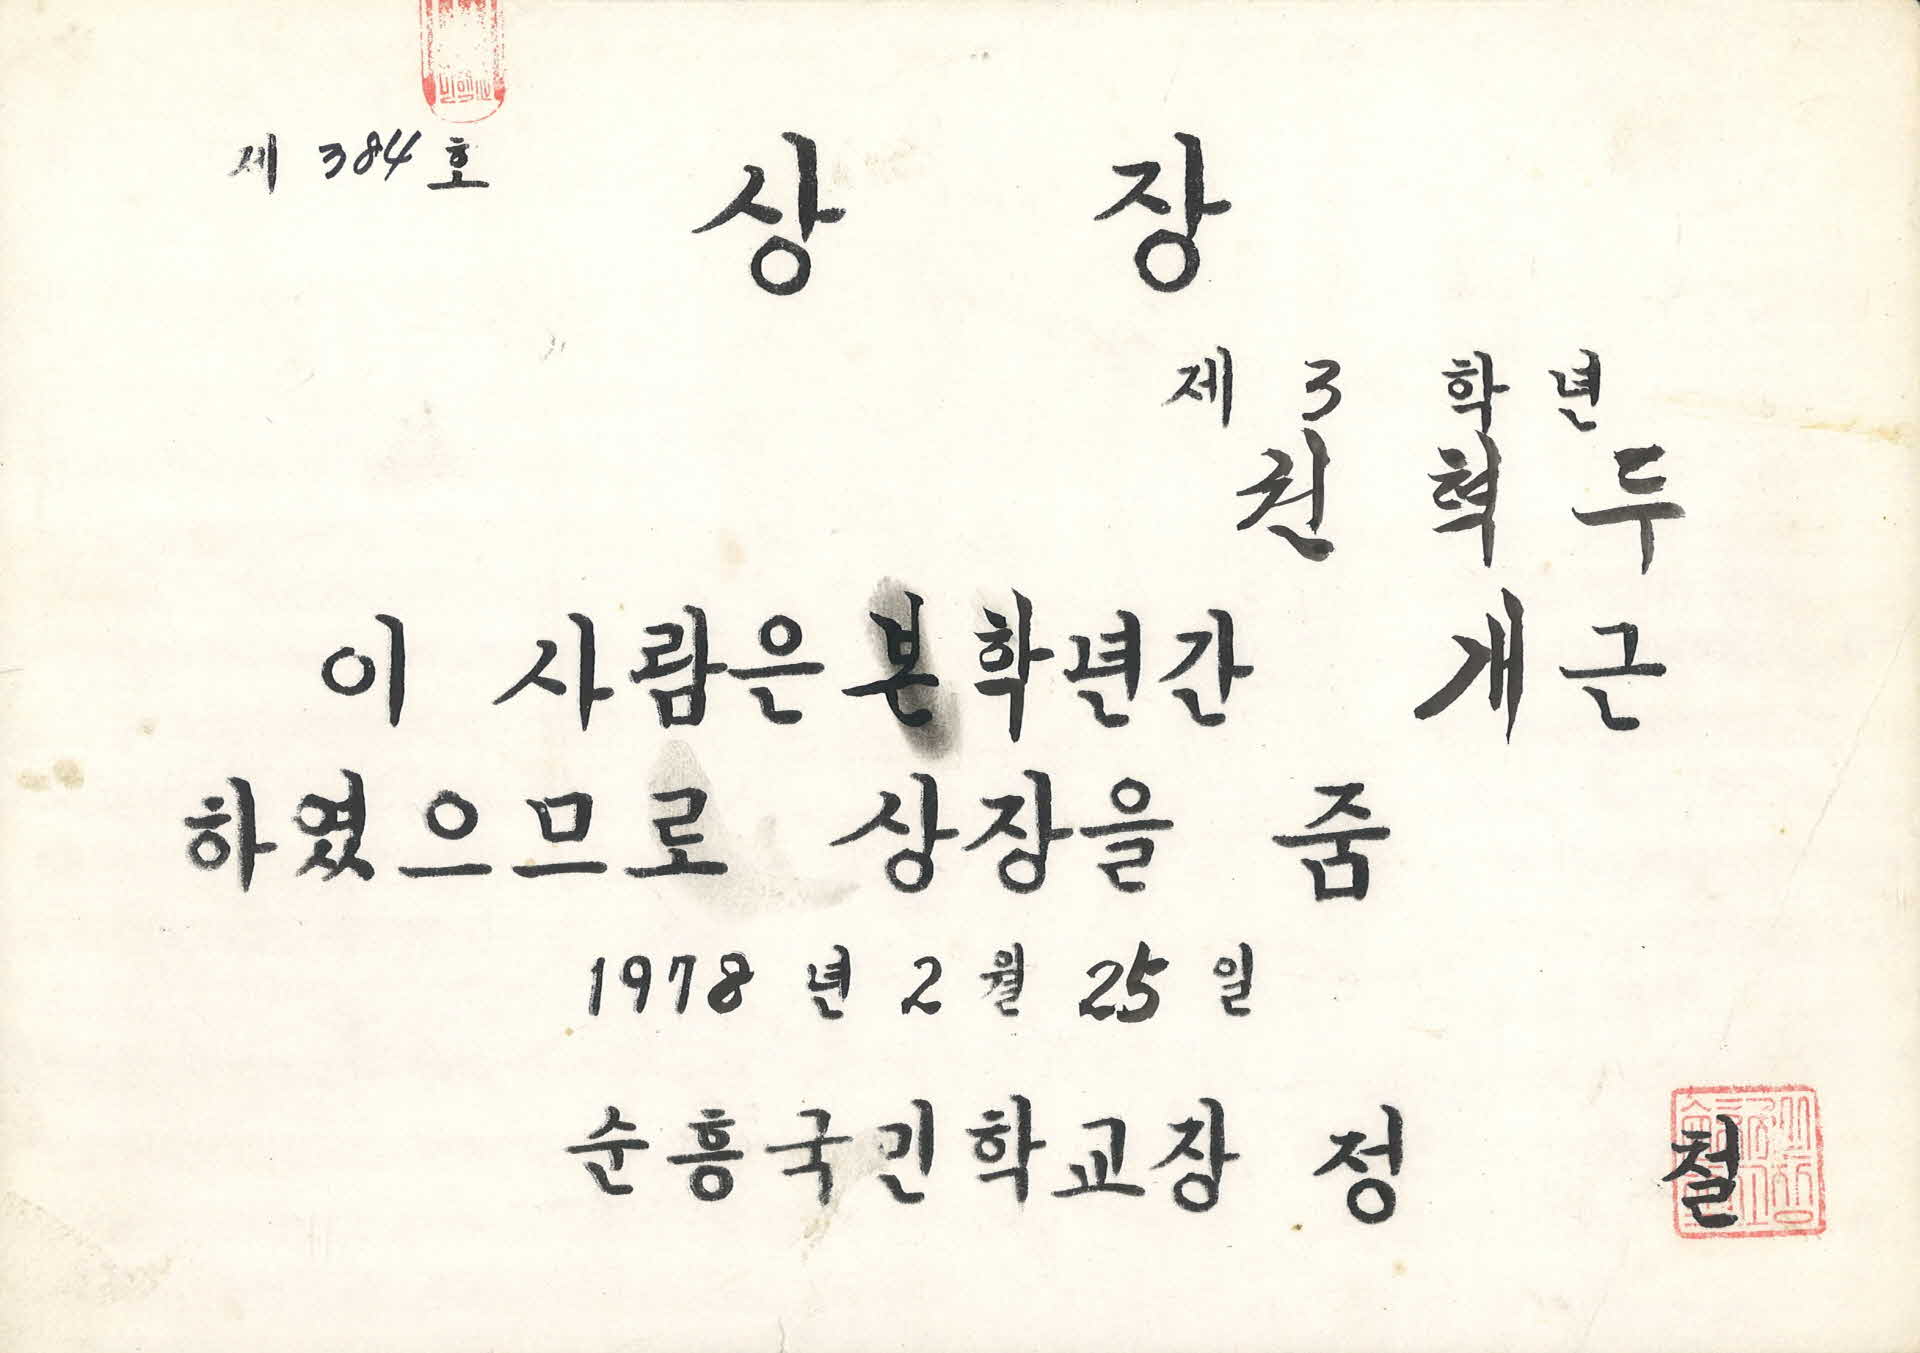 제 384 호
상 장
제 3 학년
권혁두
이 사람은 본학년간 개근
하였으므로 상장을 줌
1978 년 2 월 25 일
순흥국민학교장 정 철